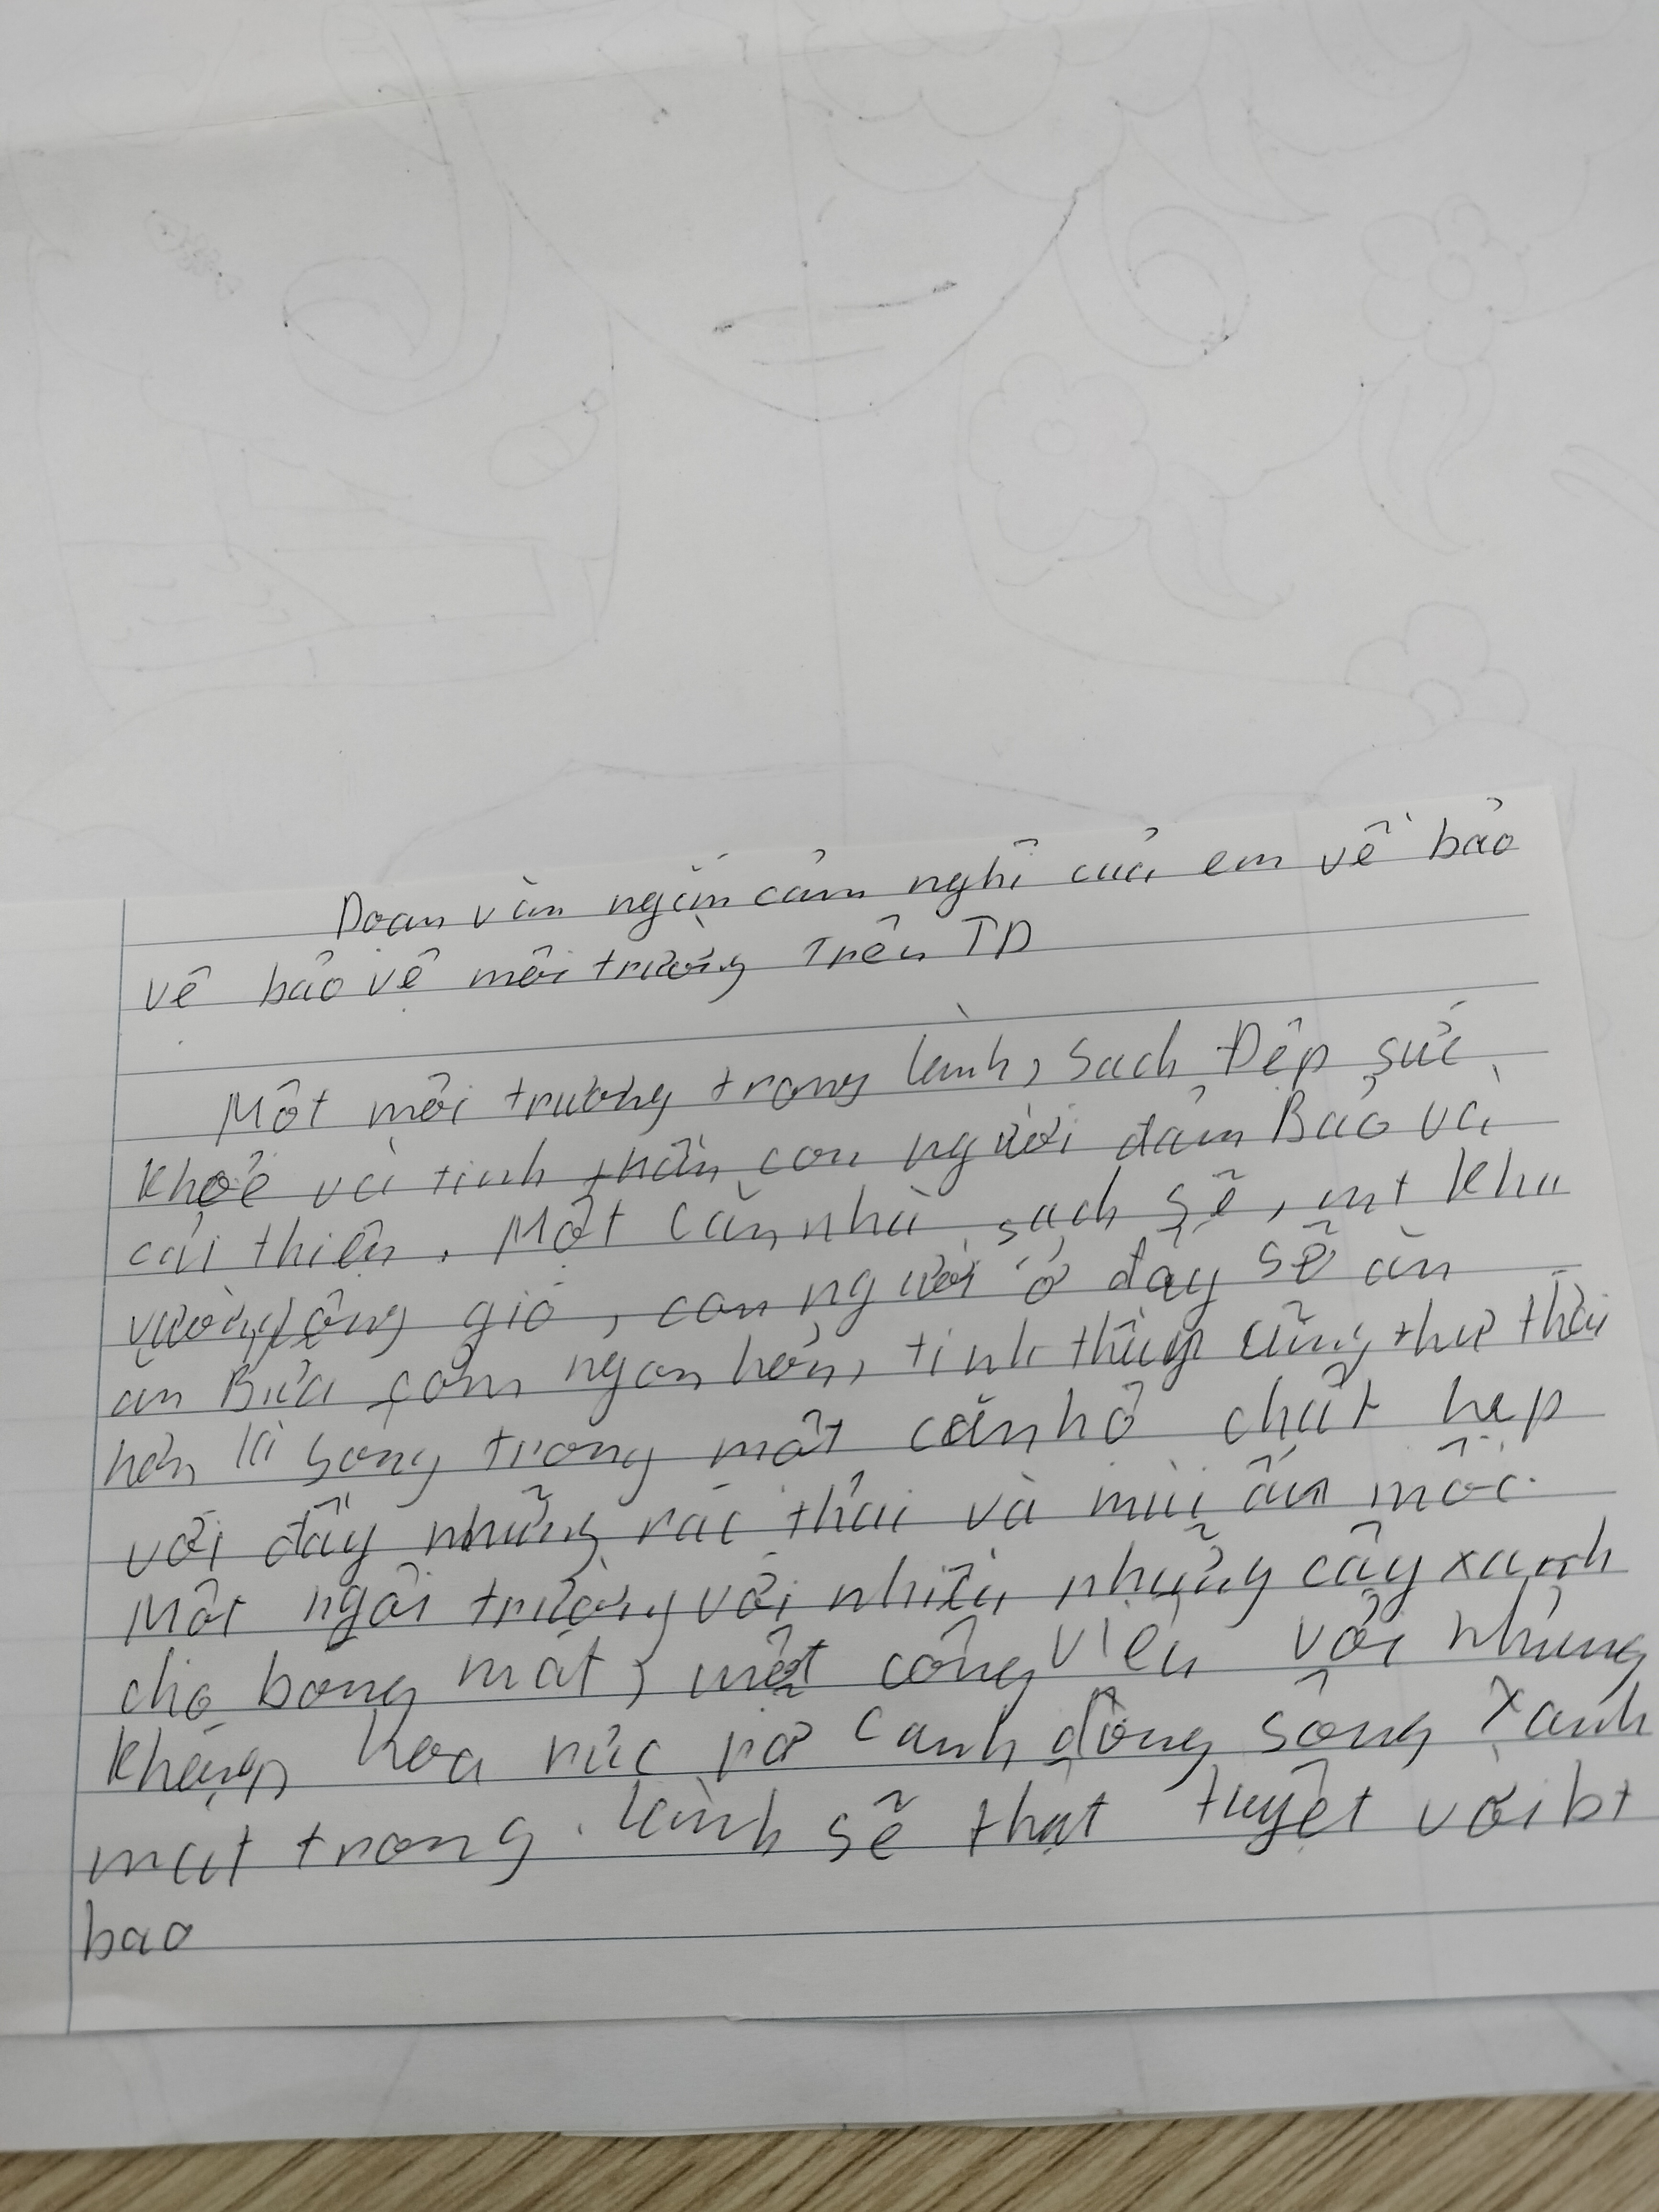 Đoạn văn ngắn cảm nghĩ của em về bảo
vệ bảo vệ môi trường Trên TĐ
Một môi trường trong lành, sạch Đẹp sức
khoẻ và tinh thần con người đảm Bảo và
cải thiện. Một căn nhà sạch sẽ, mt khu
vườn lộng gió, con người ở đây sẽ ăn
ăn Bữa cơm ngon hơn, tinh thần cũng thư thái
hơn là sống trong một căn hộ chật hẹp
với đầy những rác thải và mùi ẩm mốc.
Một ngôi trường với nhiều những cây xanh
cho bóng mát, một công viên với những
hoa rực rỡ cạnh dòng sông xanh
mát trong. lành sẽ thật tuyệt vời bt
bao